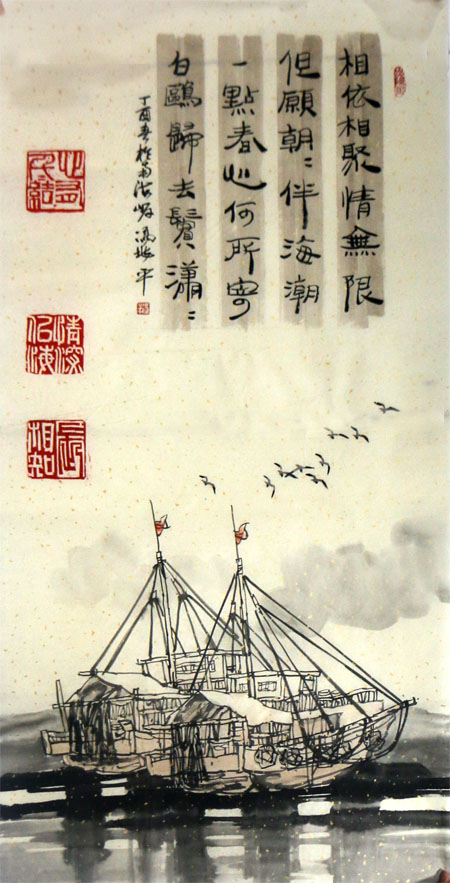 相依相聚情無限
但願朝〻伴海潮
一點春心何所寄
白鷗歸去鬢瀟〻
丁酉春於南海
情深似海
長相知